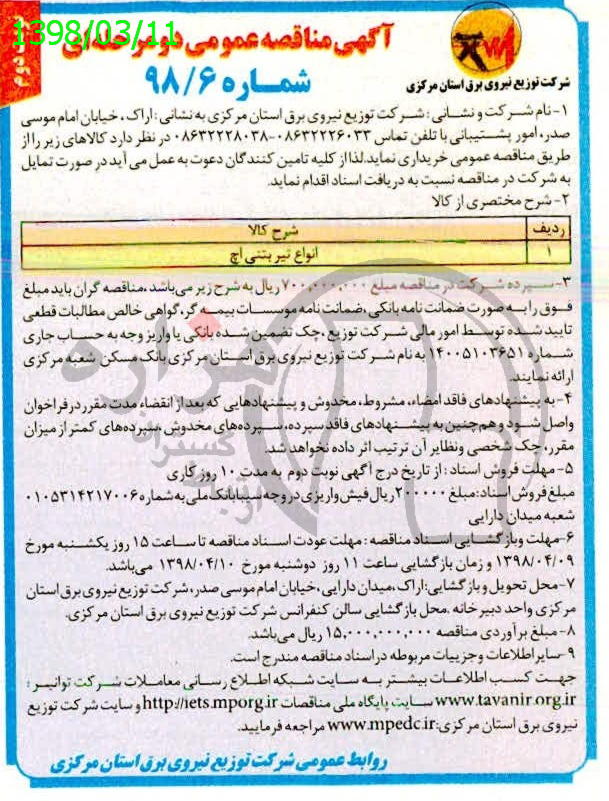 1398/03/11
دوم
آگهی مناقصه عمومی دو مرحله‌ای
شماره ۹۸/۶
شرکت توزیع نیروی برق استان مرکزی
۱- نام شرکت و نشانی: شرکت توزیع نیروی برق استان مرکزی به نشانی: اراک، خیابان امام موسی
صدر، امور پشتیبانی با تلفن تماس ۰۸۶۳۲۲۲۶۰۳۳-۰۸۶۳۲۲۲۸۰۳۸ در نظر دارد کالاهای زیر را از
طریق مناقصه عمومی خریداری نماید. لذا از کلیه تامین کنندگان دعوت به عمل می آید در صورت تمایل
به شرکت در مناقصه نسبت به دریافت اسناد اقدام نماید.
۲- شرح مختصری از کالا
ردیف شرح کالا
۱ انواع تیر بتنی اچ
۳- سپرده شرکت در مناقصه مبلغ ۷۰۰,۰۰۰,۰۰۰ ریال به شرح زیر می‌باشد، مناقصه گران باید مبلغ
فوق را به صورت ضمانت نامه بانکی، ضمانت نامه موسسات بیمه گر، گواهی خالص مطالبات قطعی
تایید شده توسط امور مالی شرکت توزیع، چک تضمین شده بانکی یا واریز وجه به حساب جاری
شماره ۱۴۰۰۵۱۰۳۶۵۱ به نام شرکت توزیع نیروی برق استان مرکزی بانک مسکن شعبه مرکزی
ارائه نمایند.
۴- به پیشنهادهای فاقد امضاء، مشروط، مخدوش و پیشنهادهایی که بعد از انقضاء مدت مقرر در فراخوان
واصل شود و هم چنین به پیشنهادهای فاقد سپرده، سپرده‌های مخدوش، سپرده‌های کمتر از میزان
مقرر، چک شخصی ونظایر آن ترتیب اثر داده نخواهد شد.
۵- مهلت فروش اسناد: از تاریخ درج آگهی نوبت دوم به مدت ۱۰ روز کاری
مبلغ فروش اسناد: مبلغ ۲۰۰۰۰۰ ریال فیش واریزی در وجه سیبا بانک ملی به شماره ۰۱۰۵۳۱۴۲۱۷۰۰۶
شعبه میدان دارایی
۶- مهلت وبازگشایی اسناد مناقصه: مهلت عودت اسناد مناقصه تا ساعت ۱۵ روز یکشنبه مورخ
۱۳۹۸/۰۴/۰۹ و زمان بازگشایی ساعت ۱۱ روز دوشنبه مورخ ۱۳۹۸/۰۴/۱۰ می‌باشد.
۷- محل تحویل و بازگشایی: اراک، میدان دارایی، خیابان امام موسی صدر، شرکت توزیع نیروی برق استان
مرکزی واحد دبیرخانه. محل بازگشایی سالن کنفرانس شرکت توزیع نیروی برق استان مرکزی.
۸- مبلغ برآوردی مناقصه ۱۵,۰۰۰,۰۰۰,۰۰۰ ریال می‌باشد.
۹- سایر اطلاعات و جزییات مربوطه در اسناد مناقصه مندرج است.
جهت کسب اطلاعات بیشتر به سایت شبکه اطلاع رسانی معاملات شرکت توانیر:
www.tavanir.org.ir سایت پایگاه ملی مناقصات http://iets.mporg.ir و سایت شرکت توزیع
نیروی برق استان مرکزی: www.mpedc.ir مراجعه فرمایید.
روابط عمومی شرکت توزیع نیروی برق استان مرکزی